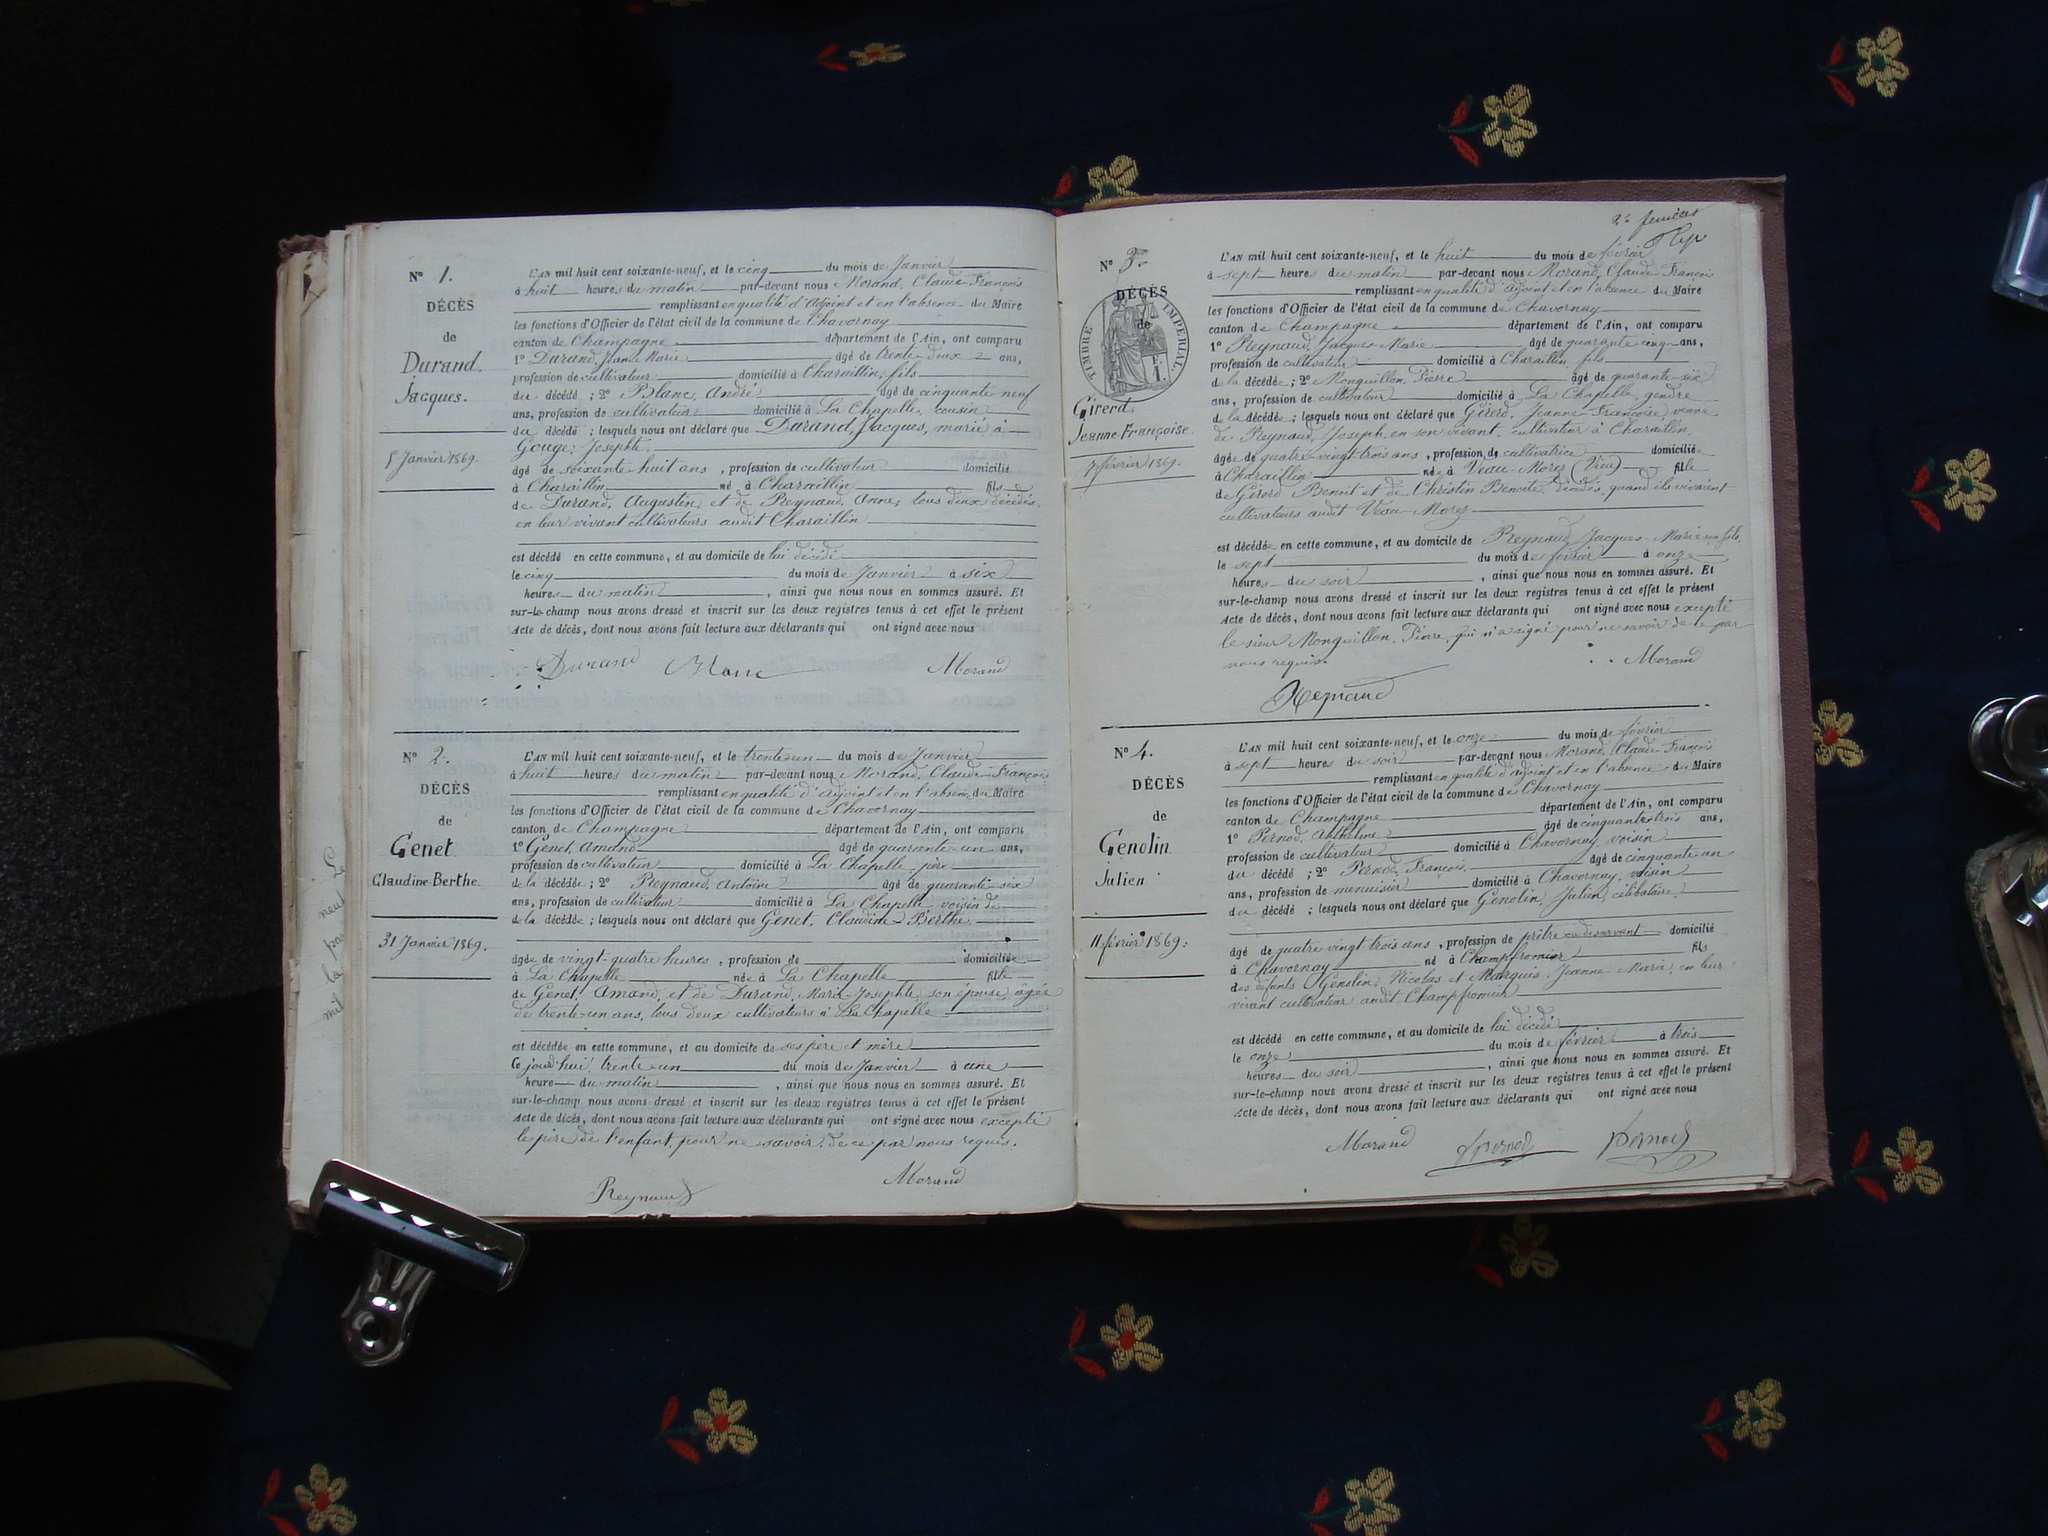 N° 1.
DÉCÈS
de
Durand.
Jacques.
5 Janvier 1869.
L'AN mil huit cent soixante-neuf, et le cinq du mois de Janvier
à huit heures du matin par-devant nous Morand, Claude-François
remplissant en qualité d'Adjoint et en l'absence du Maire
les fonctions d'Officier de l'état civil de la commune de Chavornay
canton de Champagne département de l'Ain, ont comparu
1° Durand, Jean-Marie âgé de trente-deux ans,
profession de cultivateur domicilié à Charaillin, fils
du décédé ; 2° Blanc, André âgé de cinquante neuf
ans, profession de cultivateur domicilié à La Chapelle, cousin
du décédé ; lesquels nous ont déclaré que Durand, Jacques, marié à
Gouge, Josephte
âgé de soixante-huit ans, profession de cultivateur domicilié
à Charaillin né à Charaillin fils
de Durand, Augustin, et de Reynaud, Anne, tous deux décédés,
en leur vivant cultivateurs audit Charaillin
est décédé en cette commune, et au domicile de lui décédé
le cinq du mois de Janvier à six
heures du matin, ainsi que nous nous en sommes assuré. Et
sur-le-champ nous avons dressé et inscrit sur les deux registres tenus à cet effet le présent
acte de décès, dont nous avons fait lecture aux déclarants qui ont signé avec nous
Durand Blanc Morand
N° 2.
DÉCÈS
de
Genet
Claudine-Berthe.
31 Janvier 1869.
L'AN mil huit cent soixante-neuf, et le trente-un du mois de Janvier
à huit heures du matin par-devant nous Morand, Claude-François
remplissant en qualité d'adjoint et en l'absence du Maire
les fonctions d'Officier de l'état civil de la commune de Chavornay
canton de Champagne département de l'Ain, ont comparu
1° Genet, Amand âgé de quarante-un ans,
profession de cultivateur domicilié à La Chapelle, père
de la décédée ; 2° Reynaud, Antoine âgé de quarante-six
ans, profession de cultivateur domicilié à La Chapelle, voisin de
de la décédée ; lesquels nous ont déclaré que Genet, Claudine-Berthe
âgée de vingt-quatre heures, profession de domiciliée
à La Chapelle née à La Chapelle fille
de Genet, Amand, et de Durand, Marie-Josephte, son épouse, âgée
de trente-un ans, tous deux cultivateurs à La Chapelle
est décédée en cette commune, et au domicile de ses père et mère
Ce jourd'hui trente-un du mois de Janvier à une
heure du matin, ainsi que nous nous en sommes assuré. Et
sur-le-champ nous avons dressé et inscrit sur les deux registres tenus à cet effet le présent
acte de décès, dont nous avons fait lecture aux déclarants qui ont signé avec nous excepté
le père de l'enfant, pour ne savoir, de ce par nous requis.
Reynaud Morand
2e feuillet
N° 3.
DÉCÈS
de
TIMBRE IMPERIAL.
Girerd,
Jeanne-Françoise.
7 février 1869.
L'AN mil huit cent soixante-neuf, et le huit du mois de février
à sept heures du matin par-devant nous Morand, Claude-François
remplissant en qualité d'adjoint et en l'absence du Maire
les fonctions d'Officier de l'état civil de la commune de Chavornay
canton de Champagne département de l'Ain, ont comparu
1° Reynaud, Jacques-Marie âgé de quarante-cinq ans,
profession de cultivateur domicilié à Charaillin, fils
de la décédée ; 2° Monguillon, Pierre âgé de quarante-six
ans, profession de cultivateur domicilié à La Chapelle, gendre
de la décédée ; lesquels nous ont déclaré que Girerd, Jeanne-Françoise, veuve
de Reynaud, Joseph, en son vivant, cultivateur à Charaillin,
âgée de quatre-vingt-trois ans, profession de cultivatrice domiciliée
à Charaillin née à Veau-Morez (Vieu) fille
de Girerd Benoit et de Christin Benoite, décédés, quand ils vivaient
cultivateurs audit Veau-Morez
est décédée en cette commune, et au domicile de Reynaud, Jacques-Marie son fils,
le sept du mois de février à onze
heures du soir, ainsi que nous nous en sommes assuré. Et
sur-le-champ nous avons dressé et inscrit sur les deux registres tenus à cet effet le présent
acte de décès, dont nous avons fait lecture aux déclarants qui ont signé avec nous excepté
le sieur Monguillon, Pierre, qui n'a signé pour ne savoir de ce par
nous requis.
Morand
Reynaud
N° 4.
DÉCÈS
de
Genolin
Julien
11 février 1869.
L'AN mil huit cent soixante-neuf, et le onze du mois de février
à sept heures du soir par-devant nous Morand, Claude-François
remplissant en qualité d'adjoint et en l'absence du Maire
les fonctions d'Officier de l'état civil de la commune de Chavornay
canton de Champagne département de l'Ain, ont comparu
1° Pernod, Anthelme âgé de cinquante-trois ans,
profession de cultivateur domicilié à Chavornay, voisin
du décédé ; 2° Pernod, François, âgé de cinquante-un
ans, profession de menuisier domicilié à Chavornay, voisin
du décédé ; lesquels nous ont déclaré que Genolin, Julien, célibataire,
âgé de quatre vingt trois ans, profession de prêtre domicilié
à Chavornay né à Champfromier fils
des défunts Genolin, Nicolas et Marquis, Jeanne-Marie, en leur
vivant cultivateur audit Champfromier
est décédé en cette commune, et au domicile de lui décédé
le onze du mois de février à trois
heures du soir, ainsi que nous nous en sommes assuré. Et
sur-le-champ nous avons dressé et inscrit sur les deux registres tenus à cet effet le présent
acte de décès, dont nous avons fait lecture aux déclarants qui ont signé avec nous
Morand Pernod Pernod